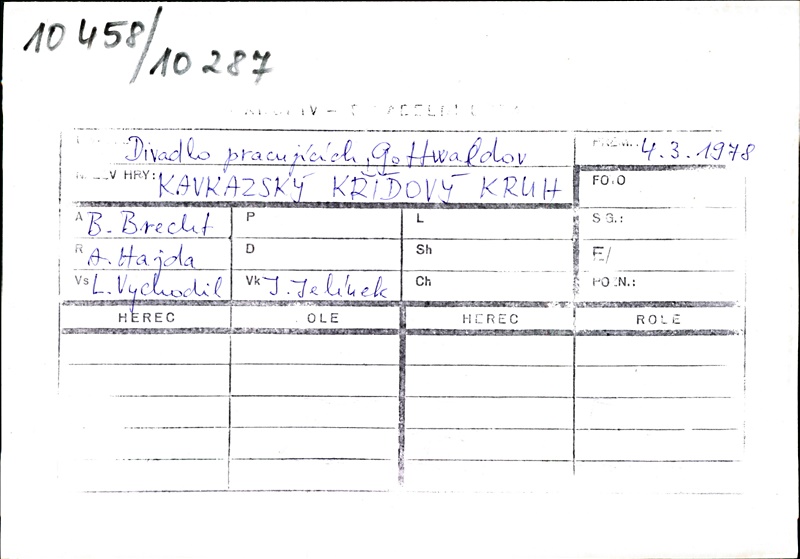 10 458/10 287
Divadlo pracujících, Gottwaldov 4.3.1978
HRY: KAVKAZSKÝ KŘÍDOVÝ KRUH
A B. Brecht P L
R A. Hajda D Sh E/
Vs L. Vychodil Vk J. Jelínek Ch
HEREC HEREC ROLE